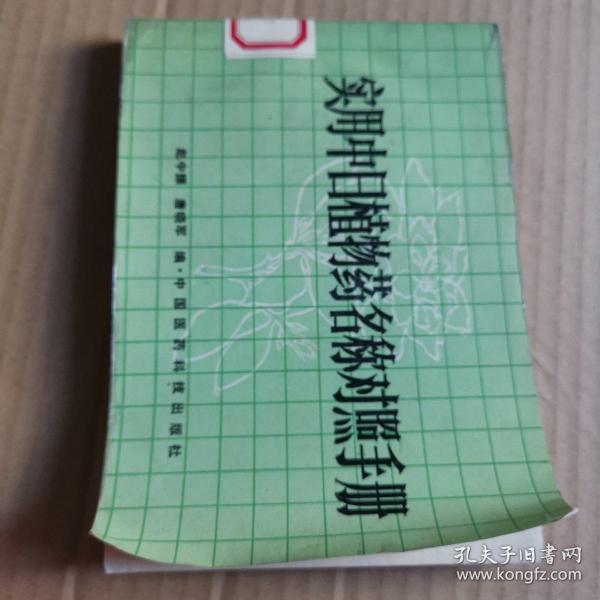 实用中日植物药名称对照手册
赵中振 唐晓军 编·中国医药科技出版社
孔夫子旧书网
www.kongfz.com